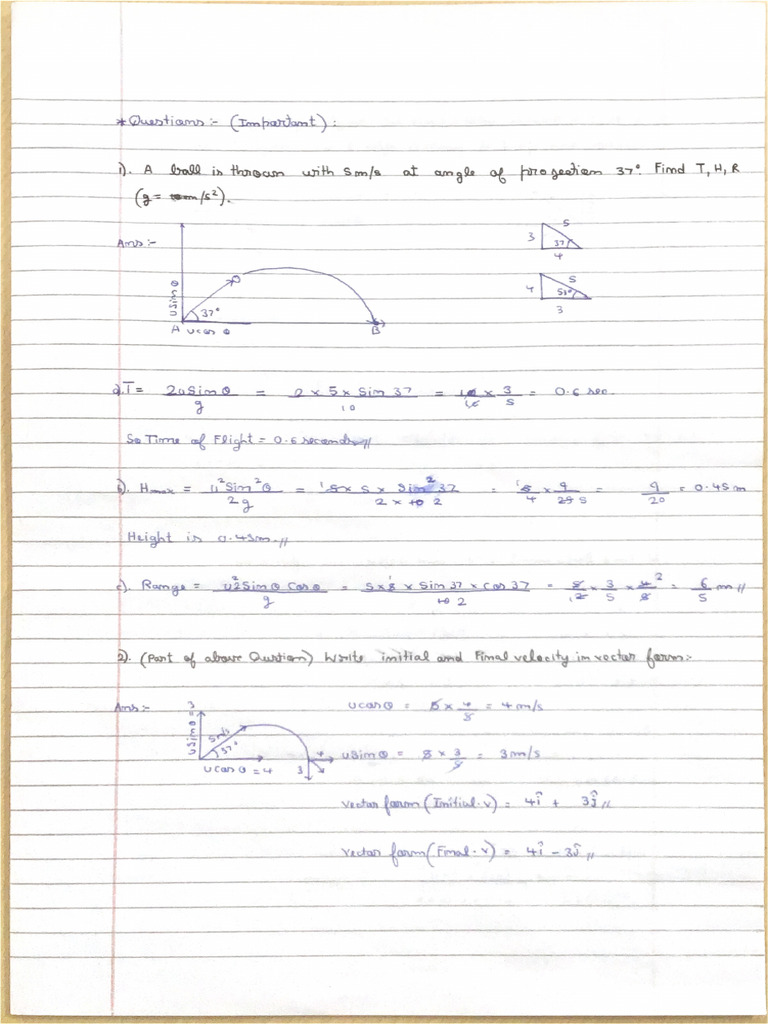 * Questions :- (Important) :
1). A ball is thrown with 5m/s at angle of projection 37° Find T, H, R
(g = 10m/s²).
Ans :-
5
3
37°
4
5
4
53°
3
u sin θ
37°
A u cos θ
B
a). T = 2usinθ/g = 2 × 5 × Sin 37/10 = 10/10 × 3/5 = 0.6 sec.
So Time of Flight = 0.6 seconds //
b). Hmax = u²Sin²θ/2g = 5 × 5 × Sin² 37/2 × 10 2 = 5/4 × 9/25 5 = 9/20 = 0.45m
Height is 0.45m. //
c). Range = u²2Sinθ Cosθ/g = 5×5 × Sin 37 × Cos 37/10 2 = × 3/5 × 4/5 = 6/5 m //
2). (Part of above Qurtion) Write initial and Final velocity in vector form:-
Ans :-
usinθ = 3
5m/s
37°
ucosθ = 4
4
3
ucosθ = 5 × 4/5 = 4m/s
usinθ = 5 × 3/5 = 3m/s
vector form (Initial. v) = 4î + 3ĵ //
vector form (Final. v) = 4î − 3ĵ //